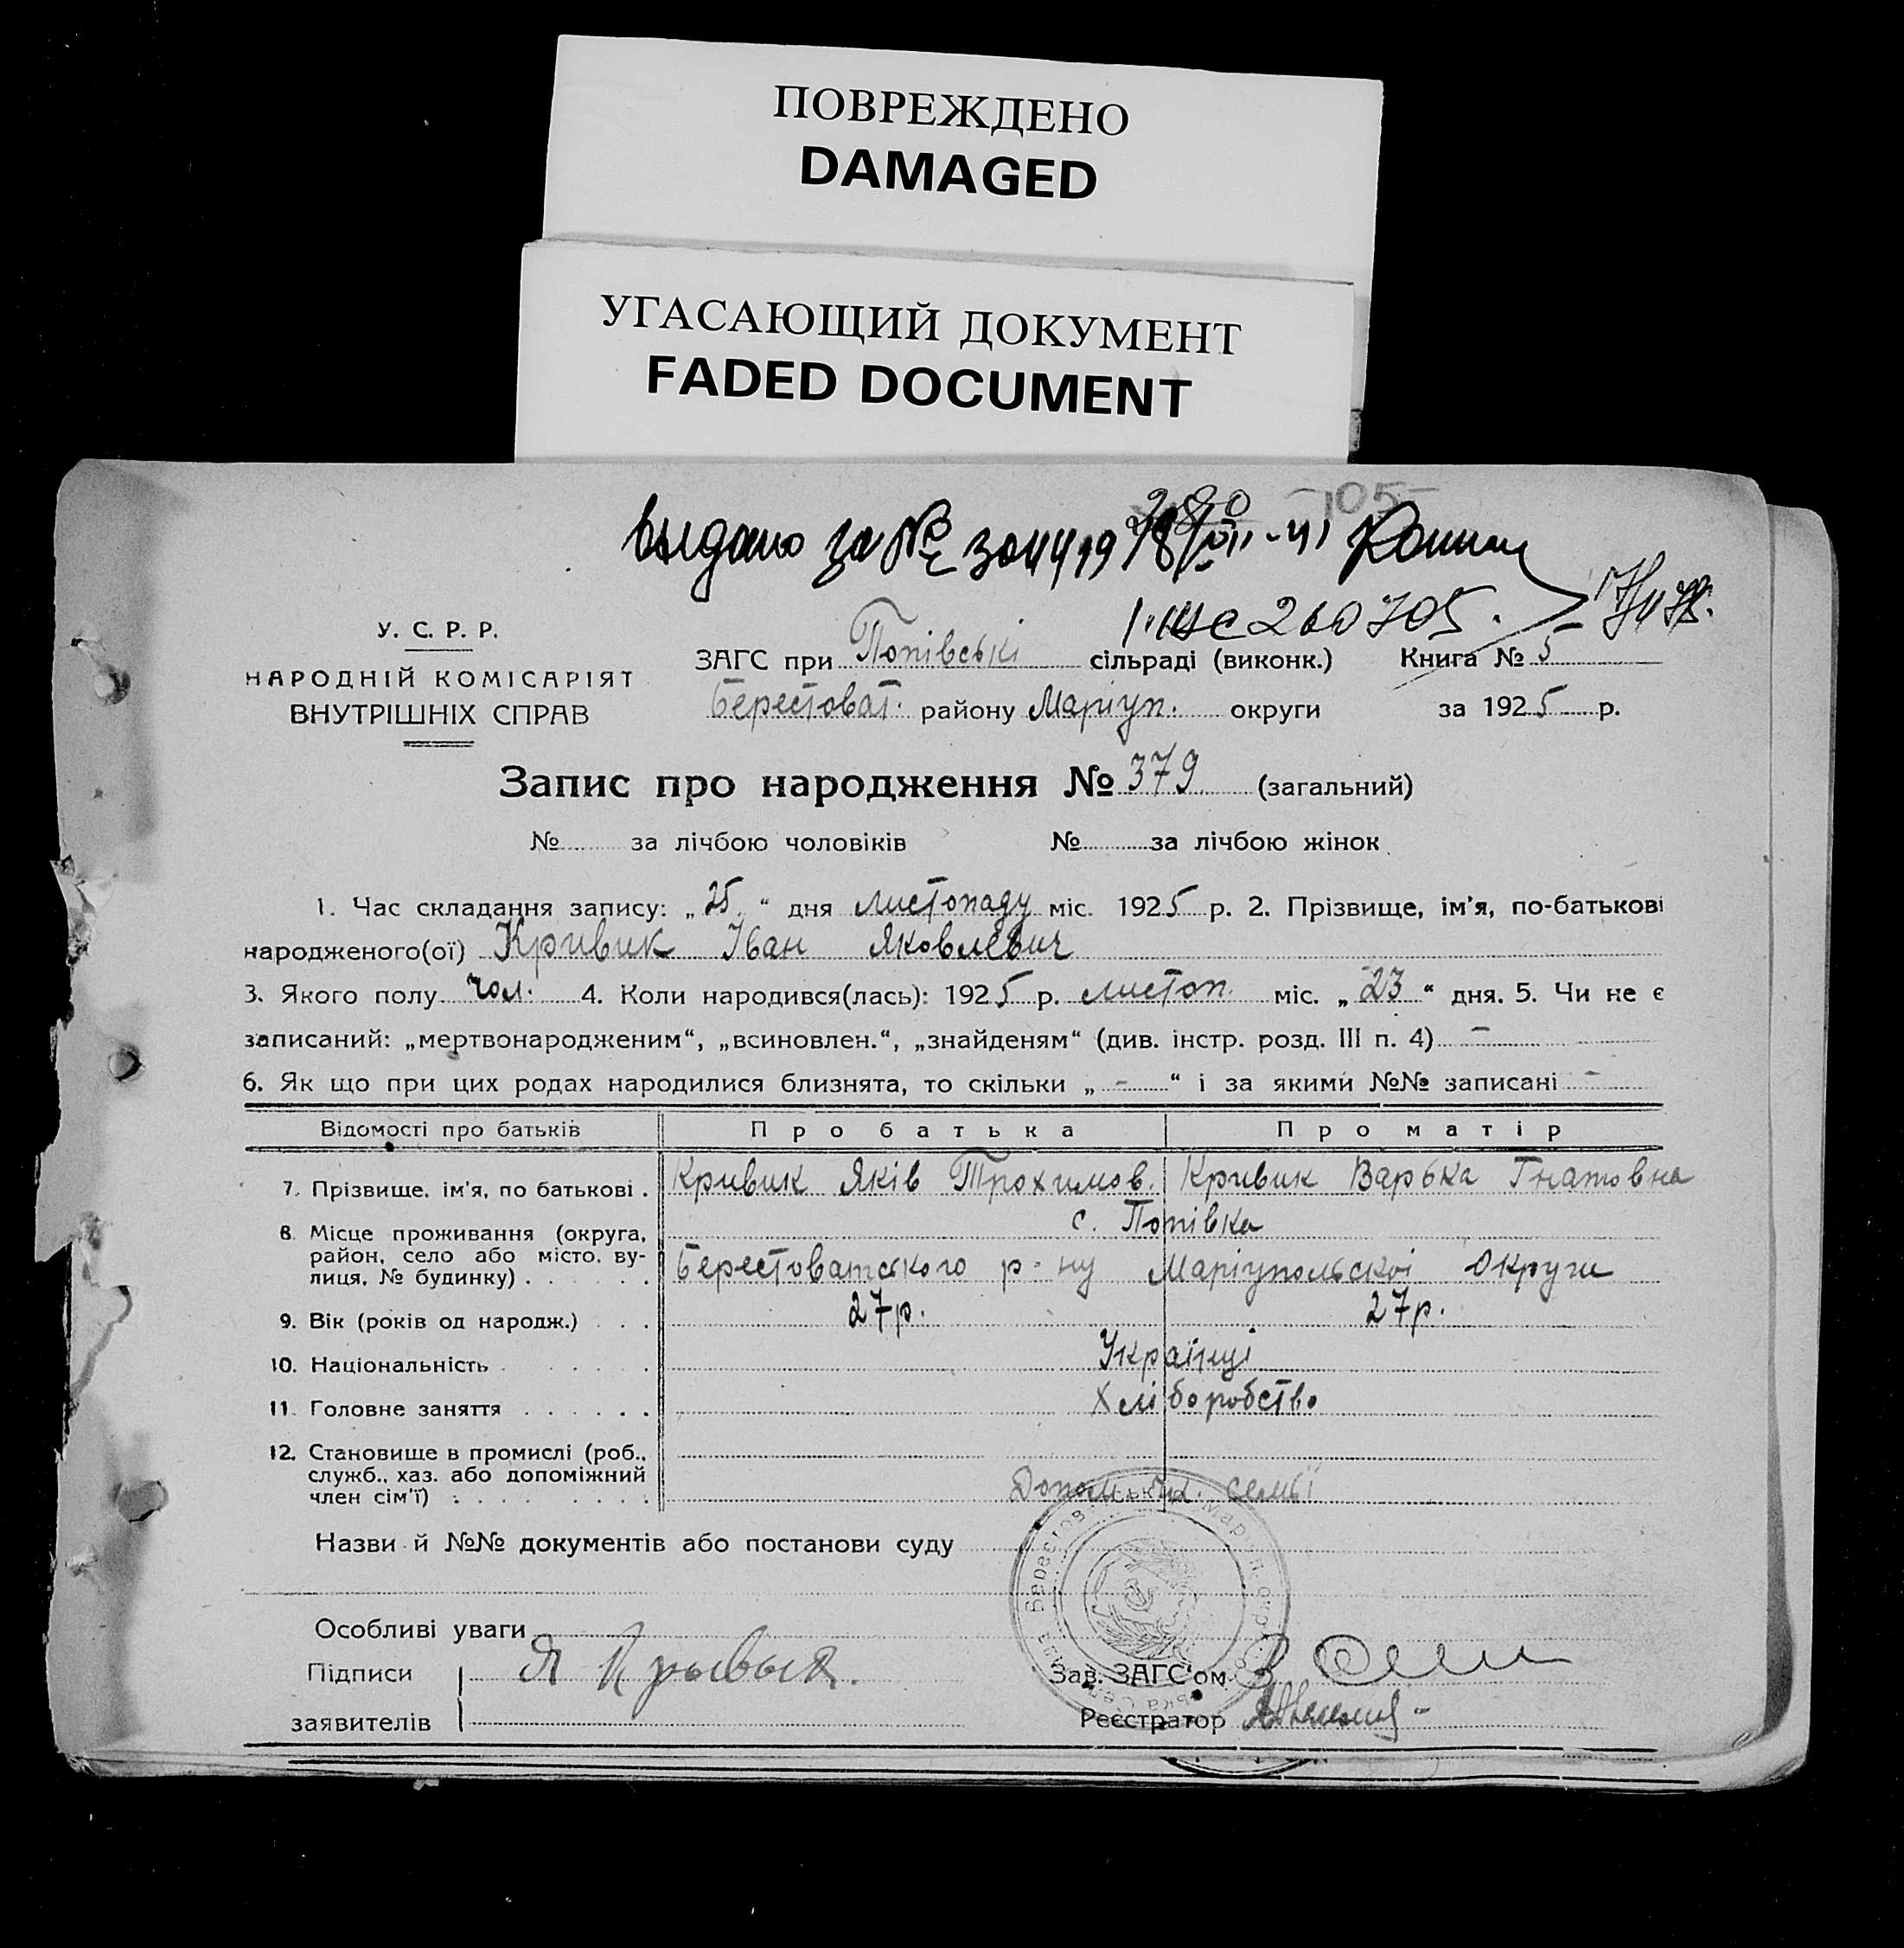 ПОВРЕЖДЕНО
DAMAGED
УГАСАЮЩИЙ ДОКУМЕНТ
FADED DOCUMENT
-105-
выдано за №
260705.
У. С. Р. Р.
НАРОДНІЙ КОМІСАРІЯТ
ВНУТРІШНІХ СПРАВ
ЗАГС при Попівські сільраді (виконк.) Книга № 5
Берестоват. району Маріуп. округи за 1925 р.
Запис про народження № 379 (загальний)
№ за лічбою чоловіків № за лічбою жінок
1. Час складання запису: „25“ дня листопаду міс. 1925 р. 2. Прізвище, ім'я, по-батькові
народженого(ої) Кривик Іван Яковлевич
3. Якого полу чол. 4. Коли народився(лась): 1925 р. листоп. міс. „23“ дня. 5. Чи не є
записаний: „мертвонародженим“, „всиновлен.“, „знайденям“ (див. інстр. розд. III п. 4) -
6. Як що при цих родах народилися близнята, то скільки „-“ і за якими №№ записані -
Відомості про батьків Про батька Про матір
7. Прізвище, ім'я, по батькові . Кривик Яків Трохимов. Кривик Варька Гнатовна
8. Місце проживання (округа, с. Попівка
район, село або місто, ву-
лиця, № будинку) . . . . . . Берестоватського р-ну Маріупольскоі Округи
9. Вік (років од народж.) . . . 27 р. 27 р.
10. Національність . . . . . . . Українці
11. Головне заняття . . . . . . Хліборобство
12. Становище в промислі (роб.,
служб., хаз. або допоміжний
член сім'ї) . . . . . . . . . семьї
Назви й №№ документів або постанови суду
Особливі уваги
Підписи Я Крывык.
заявителів
Зав. ЗАГС'ом
Реєстратор